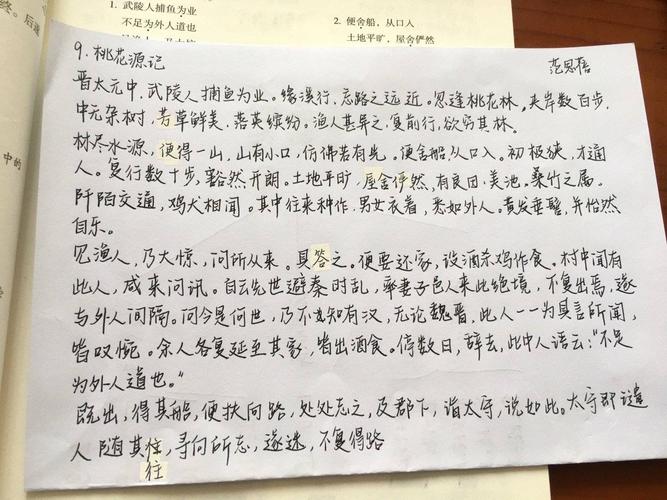 1. 武陵人捕鱼为业
不足为外人道也
2. 便舍船，从口人
土地平旷，屋舍俨然
终。后遂
中的
9. 桃花源记
范思梧
晋太元中，武陵人捕鱼为业。缘溪行，忘路之远近。忽逢桃花林，夹岸数百步，
中无杂树，芳草鲜美，落英缤纷。渔人甚异之，复前行，欲穷其林。
林尽水源，便得一山，山有小口，仿佛若有光。便舍船，从口入。初极狭，才通
人。复行数十步，豁然开朗。土地平旷，屋舍俨然，有良田、美池、桑竹之属。
阡陌交通，鸡犬相闻。其中往来种作，男女衣着，悉如外人。黄发垂髫，并怡然
自乐。
见渔人，乃大惊，问所从来。具答之。便要还家，设酒杀鸡作食。村中闻有
此人，咸来问讯。自云先世避秦时乱，率妻子邑人来此绝境，不复出焉，遂
与外人间隔。问今是何世，乃不知有汉，无论魏晋。此人一一为具言所闻，
皆叹惋。余人各复延至其家，皆出酒食。停数日，辞去。此中人语云："不足
为外人道也。"
既出，得其船，便扶向路，处处志之，及郡下，诣太守，说如此。太守即遣
人随其往，寻向所志，遂迷，不复得路
往